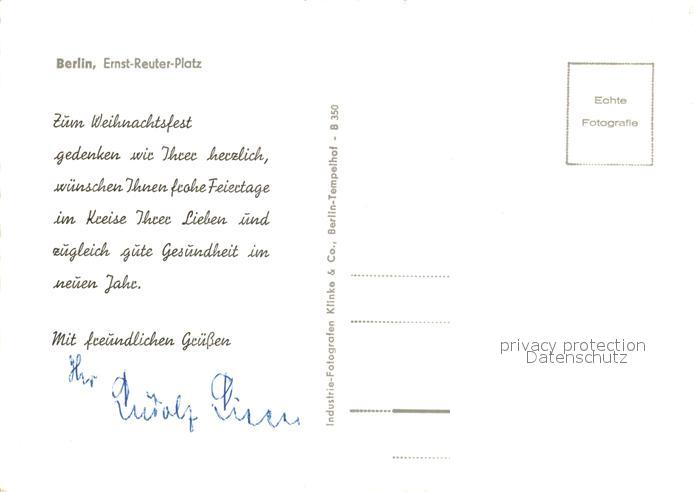 Berlin, Ernst-Reuter-Platz
Zum Weihnachtsfest
gedenken wir Ihrer herzlich,
wünschen Ihnen frohe Feiertage
im Kreise Ihrer Lieben und
zugleich gute Gesundheit im
neuen Jahr.
Mit freundlichen Grüßen
Ihr Rudolf
Industrie-Fotografen Klinke & Co., Berlin-Tempelhof - B 350
Echte
Fotografie
privacy protection
Datenschutz